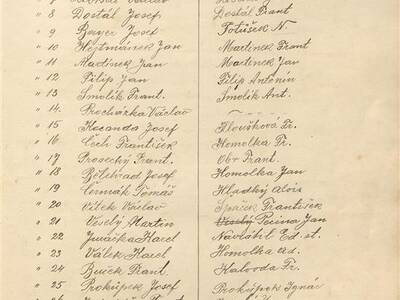 " 8 Dostál Josef Dostál Frant
" 9 Bayer Josef Potůšek N
" 10 Hejtmánek Jan Martinek Frant
" 11 Martinek Jan Martinek Jan
" 12 Filip Jan Filip Antonín
" 13 Smolík Frant. Smolík Ant.
" 14. Procházka Václav
" 15 Josef Hloušková Fr.
" 16 Čech František Homolka Fr.
" 17 Prosecký Frant. Obr Frant.
" 18 Bělehrad Josef Homolka Jan
" 19 Čermák Tomáš Hladký Alois
" 20 Vítek Václav Špaček František
" 21 Veselý Martin Veselý Pecina Jan
" 22 Karel Navrátil Ed. st.
" 23 Válek Karel Homolka Ad.
" 24 Buček Frant. Halouda Fr.
" 25 Prokůpek Josef Prokůpek Ignác